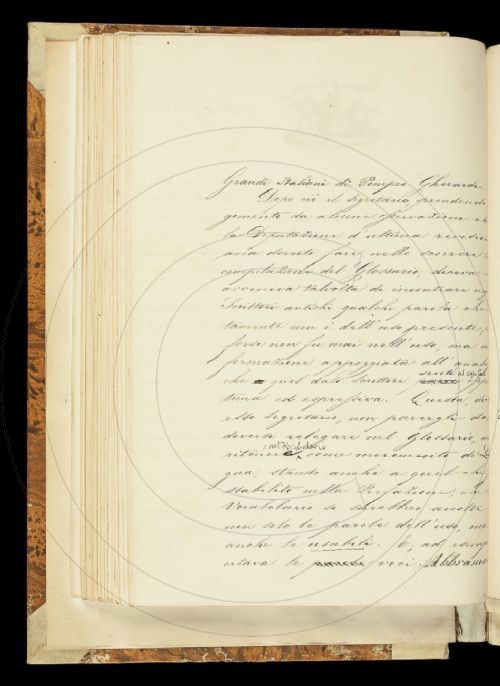 Grandi Italiani di Pompeo Gherardi
Dopo ciò il Segretario, prendendo
gomento da alcune osservazione
la Deputazione d'ultima
avea dovuto fare nello
compilazione del Glossario, diceva
avveniva talvolta de incontrare
Scrittori antichi qualche parola che
tamente non è dell'uso presente,
forse non fu mai nell'uso, ma
formazione appoggiata all'
che quel dato Scrittore sentì
tuna ed espressiva. Questa,
esso Segretario, non parergli
doversi relegare nel Glossario,
ritenere come incremento di
gua, stando anche a quel che
stabilito nella Prefazione, che
Vocabolario si sarebbero accolte
non solo le parole dell'uso, ma
anche le usabili. E, ad
citava le voci: Abbrame